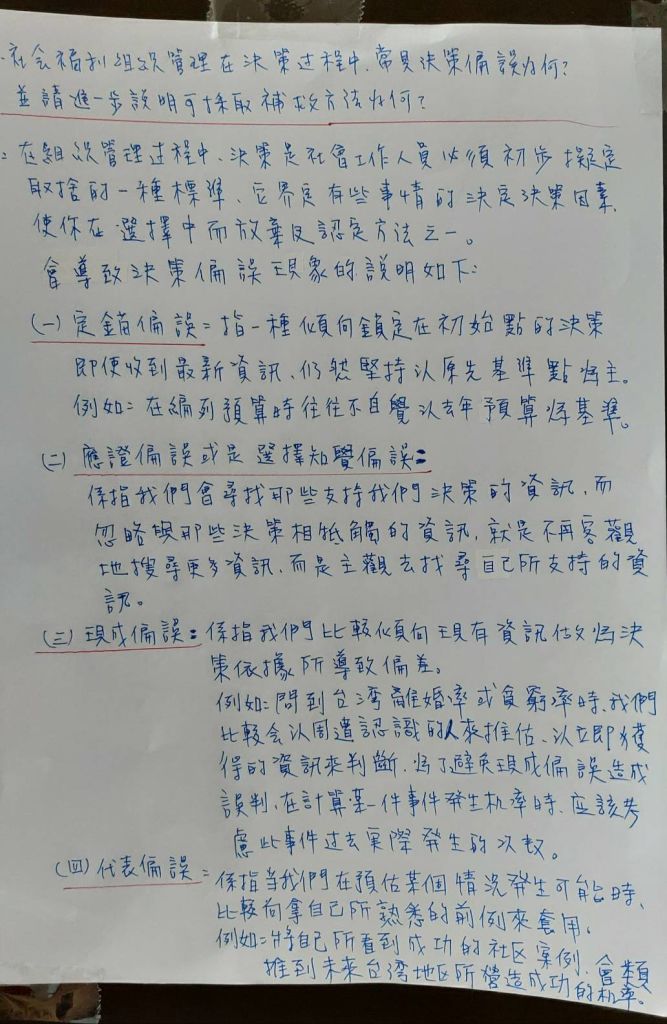 社会福利組织管理在決策过程中.常見決策偏誤为何?
並請進一步說明可採取補救方法为何?
:在組织管理过程中、決策是社會工作人員必須初步擬定
取捨的一種標準、它界定有些事情的決定決策因素,
使你在選擇中而放棄及認定方法之一。
會導致決策偏誤現象的說明如下:
(一)定錨偏誤:指一種傾向鎖定在初始點的決策
即便收到最新資訊、仍然堅持以原先基準點为主。
例如:在編列預算時往往不自覺以去年預算为基準。
(二)應證偏誤或是選擇知覺偏誤:
係指我們會尋找那些支持我們決策的資訊、而
忽略與那些決策相牴觸的資訊、就是不再客觀
地搜尋更多資訊、而是主觀去找尋自己所支持的資
訊。
(三)現成偏誤:係指我們比較傾向現有資訊做为決
策依據所導致偏差。
例如:問到台湾離婚率或貧窮率時、我們
比較会以周遭認識的人來推估、以立即獲
得的資訊來判斷.为了避免現成偏誤造成
誤判、在計算某一件事件發生机率時、应該考
慮此事件过去實際發生的次数。
(四)代表偏誤:係指当我們在預估某個情況發生可能時、
比較向拿自己所熟悉的前例來套用。
例如:将自己所看到成功的社区案例、會類
推到未來台湾地区所營造成功的机率。